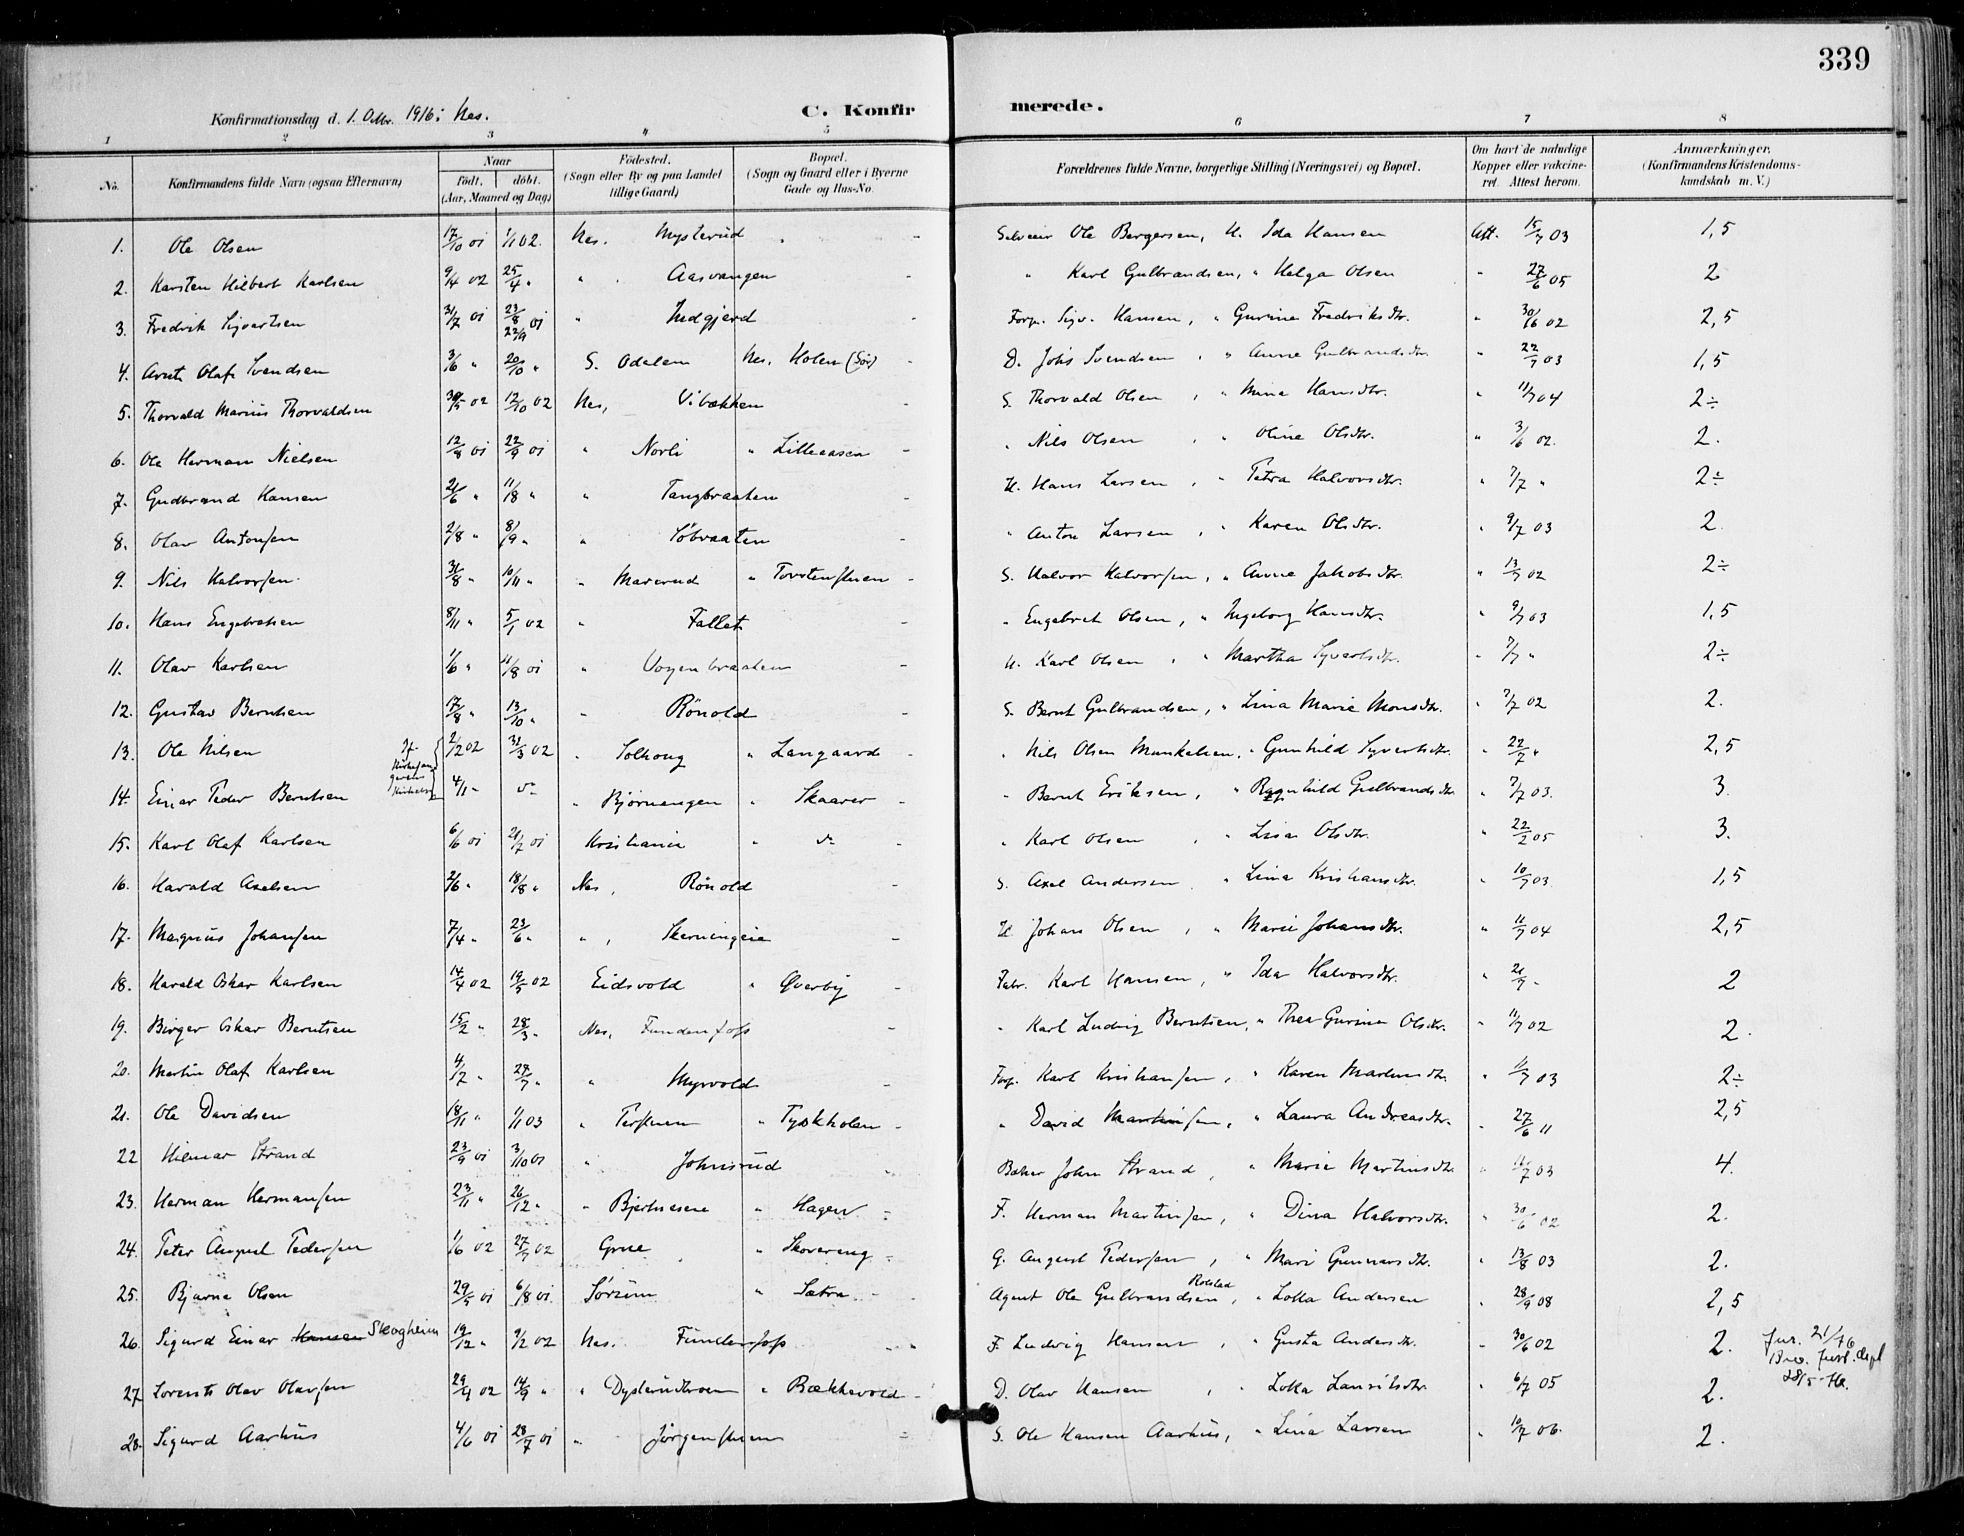 339
Konfirmationsdag d. 1. Oktbr. 1916 i Nes.
C. Konfirmerede.
1 2 3 4 5 6 7 8
No. Konfirmandens fulde Navn (ogsaa Efternavn) Naar födt, döbt. (Aar, Maaned og Dag) Födested. (Sogn eller By og paa Landet tillige Gaard) Bopæl. (Sogn og Gaard eller i Byerne Gade og Hus-No. Forældrenes fulde Navne, borgerlige Stilling (Næringsvei) og Bopæl. Om havt de naturlige Kopper eller vakcineret. Attest herom. Anmærkninger. (Konfirmandens Kristendomskundskab m. V.)
1. Ole Olsen 17/10 01 1/1 02. Nes. Mysterud Selveier Ole Bergersen, H. Ida Hansen Att. 15/7 03 1,5
2. Karsten Hilbert Karlsen 9/4 02 25/4 " " Aasvangen " Karl Gulbrandsen, " Helga Olsen " 27/6 05 2
3. Fredrik Sigvartsen 31/7 01 23/8 22/9 01 " Indgjerd Forp. Sigv. Hansen, " Gurine Fredriksdtr. " 30/6 02 2,5
4. Arnt Olaf Svendsen 3/6 " 20/10 " S. Odalen Nes. Holen (Sör) D. Johs Svendsen " Anne Gulbrandsdtr. " 22/7 03 1,5
5. Thorvald Marius Thorvaldsen 30/5 02 12/10 02 Nes, Vibækken S. Thorvald Olsen, " Mina Hansdtr. " 11/7 04 2÷
6. Ole Herman Nielsen 12/8 01 22/9 01 " Norli " Lilleaasen " Nils Olsen, " Oline Olsdtr. " 3/6 02. 2.
7. Gudbrand Hansen 21/6 " 11/18 " " Tangbraaten H. Hans Larsen, " Petra Halvorsdtr. " 7/7 " 2÷
8. Olav Antonsen 2/8 " 8/9 " " Söbraaten " Anton Larsen, " Karen Olsdtr. " 9/7 03 2
9. Nils Halvorsen 31/8 " 10/11 " " Marerud " Torstensteen S. Halvor Halvorsen, " Anne Jakobsdtr. " 13/7 02 2÷
10. Hans Engebretsen 8/11 " 5/1 02 " Fallet " Engebret Olsen, " Ingeborg Hansdtr. " 9/7 03 1,5
11. Olav Karlsen 1/6 " 11/8 01 " Voyenbraaten H. Karl Olsen, " Martha Syvertsdtr. " 7/7 " 2÷
12. Gustav Berntsen 17/8 " 13/10 " " Rönold S. Bernt Gulbrandsen, " Lina Marie Monsdtr. " 7/7 02 2.
13. Ole Nilsen 2/2 02 31/3 02 " Solhoug " Langaard " Nils Olsen Munkelien, " Gunhild Syvertsdtr. " 22/7 " 2,5
14. Einar Peder Berntsen 4/1 " d° " Bjørnengen " Skaarer " Bernt Eriksen, " Ragnhild Gulbrandsdtr. " 7/7 03. 3.
15. Karl Olaf Karlsen 6/6 01 21/7 01 Kristiania " d° " Karl Olsen, " Lisa Olsdtr. " 22/2 05 3.
16. Harald Axelsen 2/6 " 18/8 " Nes, Rönold S. Axel Andersen, " Lina Kristiansdtr. " 10/7 03 1,5
17. Magnus Johansen 7/4 " 23/6 " " Skerningeie H. Johan Olsen, " Marie Johansdtr. " 11/7 04 2,5
18. Harald Oskar Karlsen 14/4 02 19/5 02 Eidsvold " Øverby Fabr. Karl Hansen, " Ida Halvorsdtr. " 21/7 " 2
19. Birger Oskar Berntsen 15/2 " 28/3 " Nes, Fundenfoss " Karl Ludvig Berntsen, " Thea Gurine Olsdtr. " 11/7 02 2.
20. Martin Olaf Karlsen 4/7 " 27/7 " " Myrvold Forp. Karl Kristiansen, " Karen Martinsdtr. " 11/7 03 2÷
21. Ole Davidsen 18/11 " 1/1 03 " " Tyskholen " David Martinsen, " Laura Andreasdtr. " 27/6 11 2,5
22 Hilmar Strand 23/9 01 3/10 01 " Johnsrud Baker John Strand, " Marie Martinsdtr. " 11/7 03 4.
23. Herman Hermansen 23/11 " 26/12 " " Bjertnesene " Hagen F. Herman Martinsen, " Dina Halvorsdtr. " 30/6 02 2.
24. Peter August Pedersen 1/6 02 27/7 02 Grue " Skovreng G. August Pedersen, " Mari Gunnarsdtr. " 13/8 03 2.
25. Bjarne Olsen 29/5 01 6/8 01. Sørum " Sætra Agent Ole Gulbrandsen Rolstad, " Lotta Andersen " 28/9 08 2,5
26. Sigurd Einar Hansen Skogheim 19/12 " 9/2 02 Nes. Fundenfoss F. Ludvig Hansen, " Gusta Andersdtr. " 30/6 02 2. Jur. 21/76
27. Lorents Olav Olavsen 29/4 02 14/9 " " Dysterudmoen " Bækkevold D. Olav Hansen, " Lotta Lauritsdtr. " 6/7 05 2.
28. Sigurd Aarhus 4/6 01 28/7 01 " Jørgensteen S. Ole Hansen Aarhus, " Lina Larsen " 10/7 06. 2.